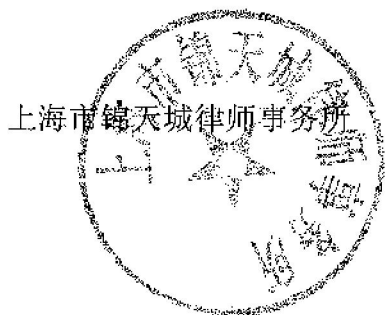 上海市锦天城律师事务所
上海市锦天城律师事务所